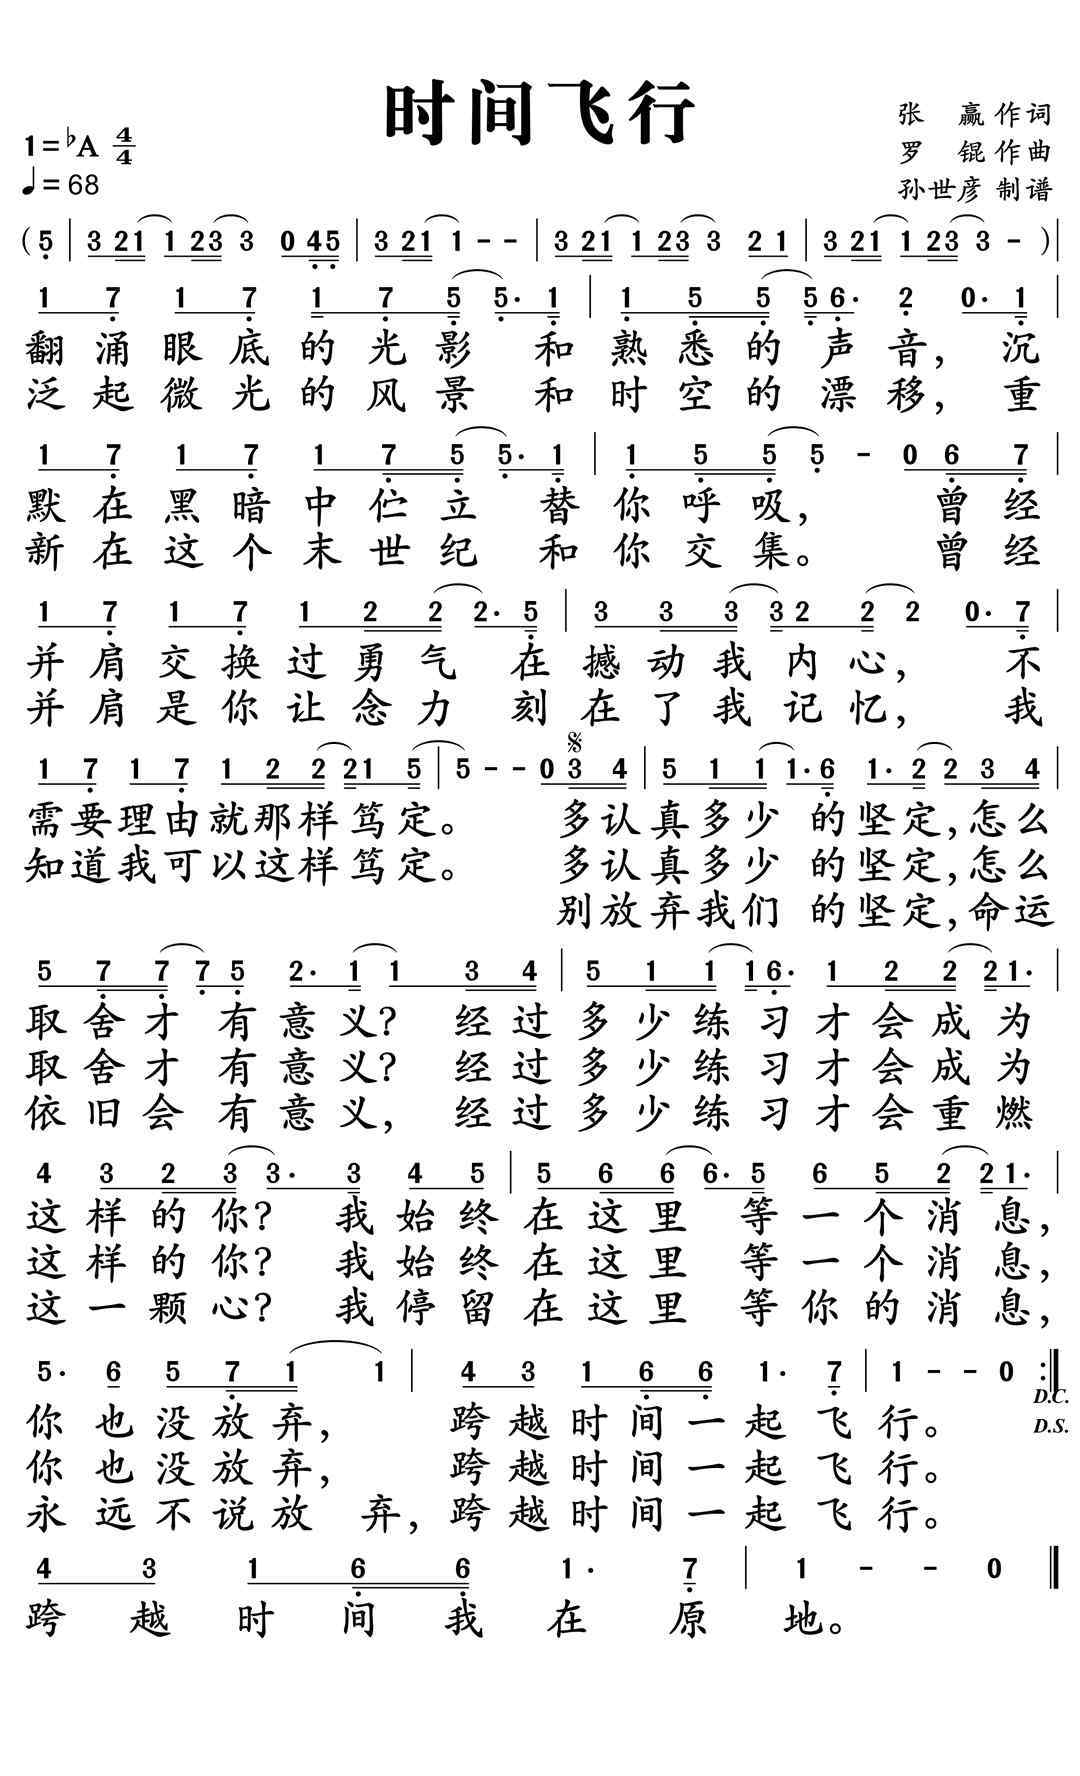 时间飞行
张 赢 作词
罗 锟 作曲
孙世彦 制谱
1=♭A 4/4
♩=68
( 5 | 3 21 1 23 3 0 45 | 3 21 1 - - | 3 21 1 23 3 2 1 | 3 21 1 23 3 - ) |
1 7 1 7 1 7 5 5· 1 | 1 5 5 5 6· 2 0· 1 |
翻涌眼底的光影 和熟悉的声音, 沉
泛起微光的风景 和时空的漂移, 重
1 7 1 7 1 7 5 5· 1 | 1 5 5 5 - 0 6 7 |
默在黑暗中伫立 替你呼吸, 曾经
新在这个末世纪 和你交集。 曾经
1 7 1 7 1 2 2 2· 5 | 3 3 3 3 2 2 2 0· 7 |
并肩交换过勇气 在撼动我内心, 不
并肩是你让念力 刻在了我记忆, 我
1 7 1 7 1 2 2 21 5 | 5 - - 0 3 4 | 5 1 1 1· 6 1· 2 2 3 4 |
需要理由就那样笃定。 多认真多少 的坚定,怎么
知道我可以这样笃定。 多认真多少 的坚定,怎么
别放弃我们 的坚定,命运
5 7 7 7 5 2· 1 1 3 4 | 5 1 1 1 6· 1 2 2 2 1· |
取舍才 有意义? 经过多少练习才会成为
取舍才 有意义? 经过多少练习才会成为
依旧会 有意义, 经过多少练习才会重燃
4 3 2 3 3· 3 4 5 | 5 6 6 6· 5 6 5 2 2 1· |
这样的你? 我始终在这里 等一个消息,
这样的你? 我始终在这里 等一个消息,
这一颗心? 我停留在这里 等你的消息,
5· 6 5 7 1 1 | 4 3 1 6 6 1· 7 | 1 - - 0 :|
D.C.
D.S.
你也没放弃, 跨越时间一起飞行。
你也没放弃, 跨越时间一起飞行。
永远不说放 弃,跨越时间一起飞行。
4 3 1 6 6 1· 7 | 1 - - 0 ‖
跨越时间我在原地。